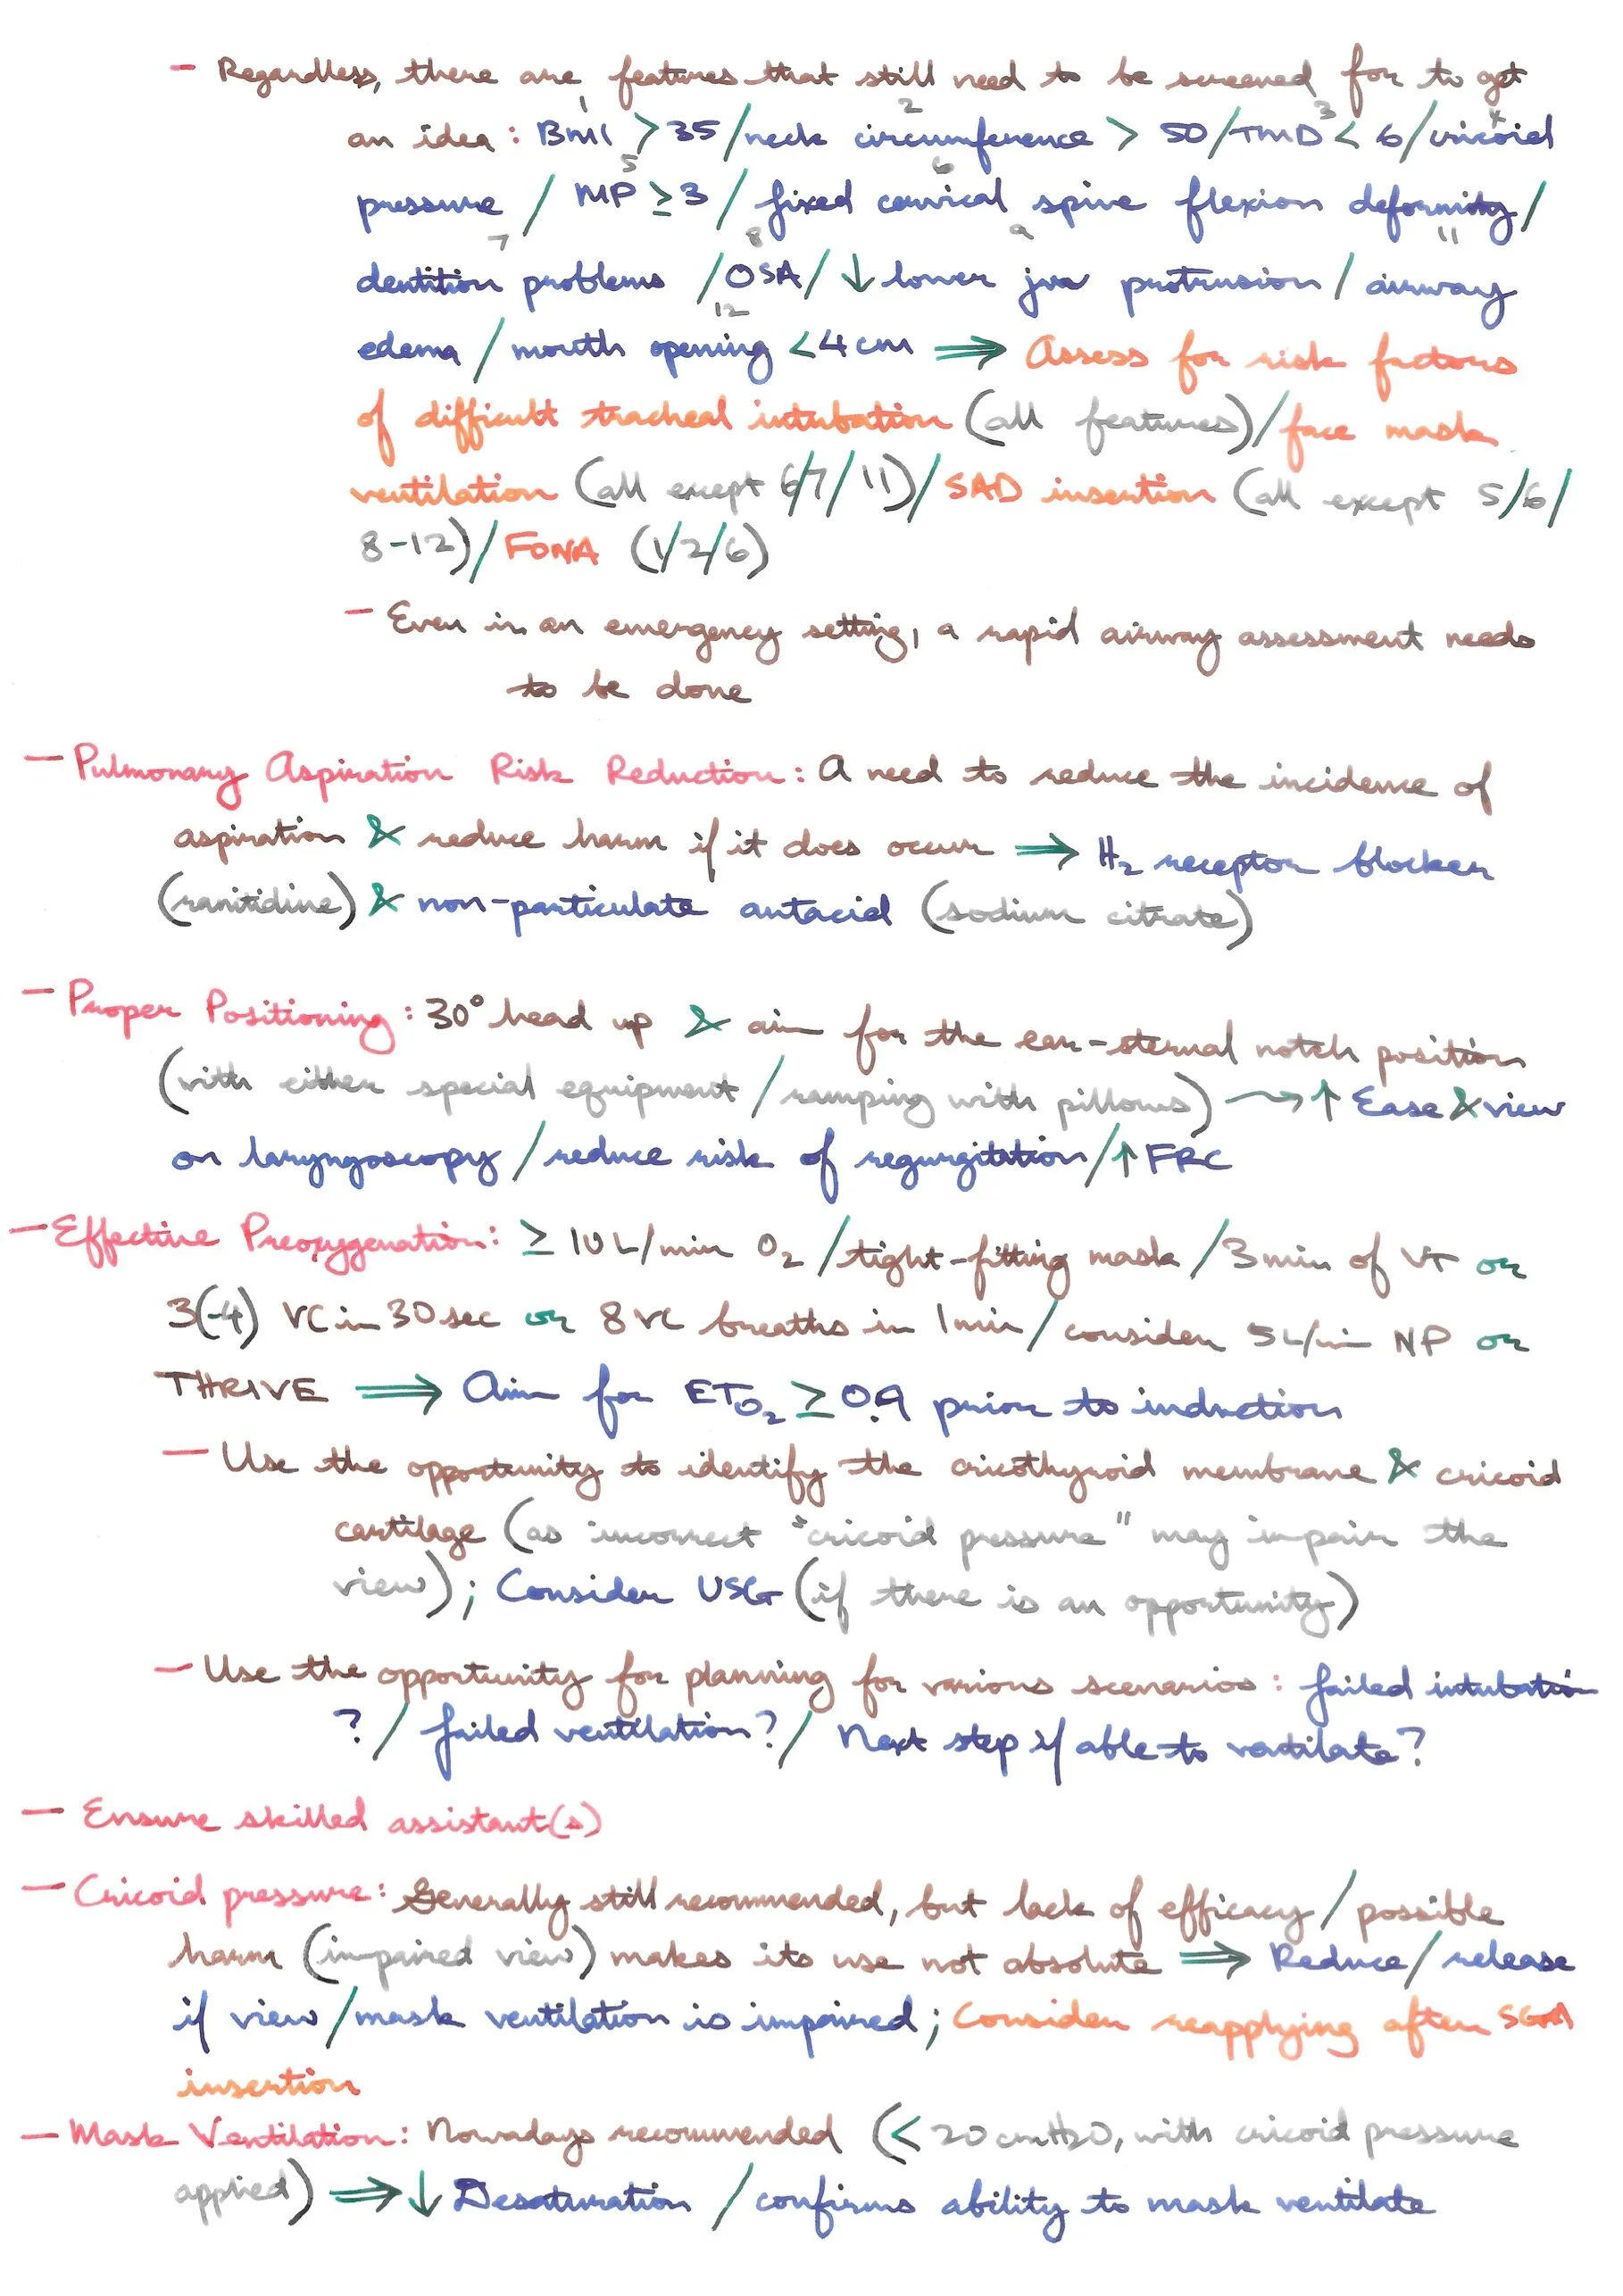 - Regardless, there are features that still need to be screened for to get
1 2 3 4
an idea: BMI > 35/neck circumference > 50/TMD < 6/cricoid
5 6
pressure / MP ≥ 3 / fixed cervical spine flexion deformity/
7 8 9 11
dentition problems /OSA/ ↓ lower jaw protrusion / airway
12
edema / mouth opening < 4 cm ⇒ Assess for risk factors
of difficult tracheal intubation (all features)/face mask
ventilation (all except 6/7/11)/ SAD insertion (all except 5/6/
8-12)/ FONA (1/2/6)
- Even in an emergency setting, a rapid airway assessment needs
to be done
- Pulmonary Aspiration Risk Reduction: A need to reduce the incidence of
aspiration & reduce harm if it does occur ⇒ H₂ receptor blocker
(ranitidine) & non-particulate antacid (sodium citrate)
- Proper Positioning: 30° head up & aim for the ear-sternal notch position
(with either special equipment / ramping with pillows) → ↑ Ease & view
on laryngoscopy / reduce risk of regurgitation/ ↑ FRC
- Effective Preoxygenation: ≥ 10 L/min O₂ / tight-fitting mask / 3 min of VT or
3(-4) VC in 30 sec or 8 VC breaths in 1 min / consider 5L/min NP or
THRIVE ⇒ Aim for ETO₂ ≥ 0.9 prior to induction
- Use the opportunity to identify the cricothyroid membrane & cricoid
cartilage (as incorrect "cricoid pressure" may impair the
view); Consider USG (if there is an opportunity)
- Use the opportunity for planning for various scenarios: failed intubation
? / failed ventilation? / Next step if able to ventilate?
- Ensure skilled assistant(s)
- Cricoid pressure: Generally still recommended, but lack of efficacy / possible
harm (impaired view) makes its use not absolute ⇒ Reduce / release
if view / mask ventilation is impaired; Consider reapplying after SGA
insertion
- Mask Ventilation: Nowadays recommended (< 20 cmH2O, with cricoid pressure
applied) ⇒ ↓ Desaturation / confirms ability to mask ventilate